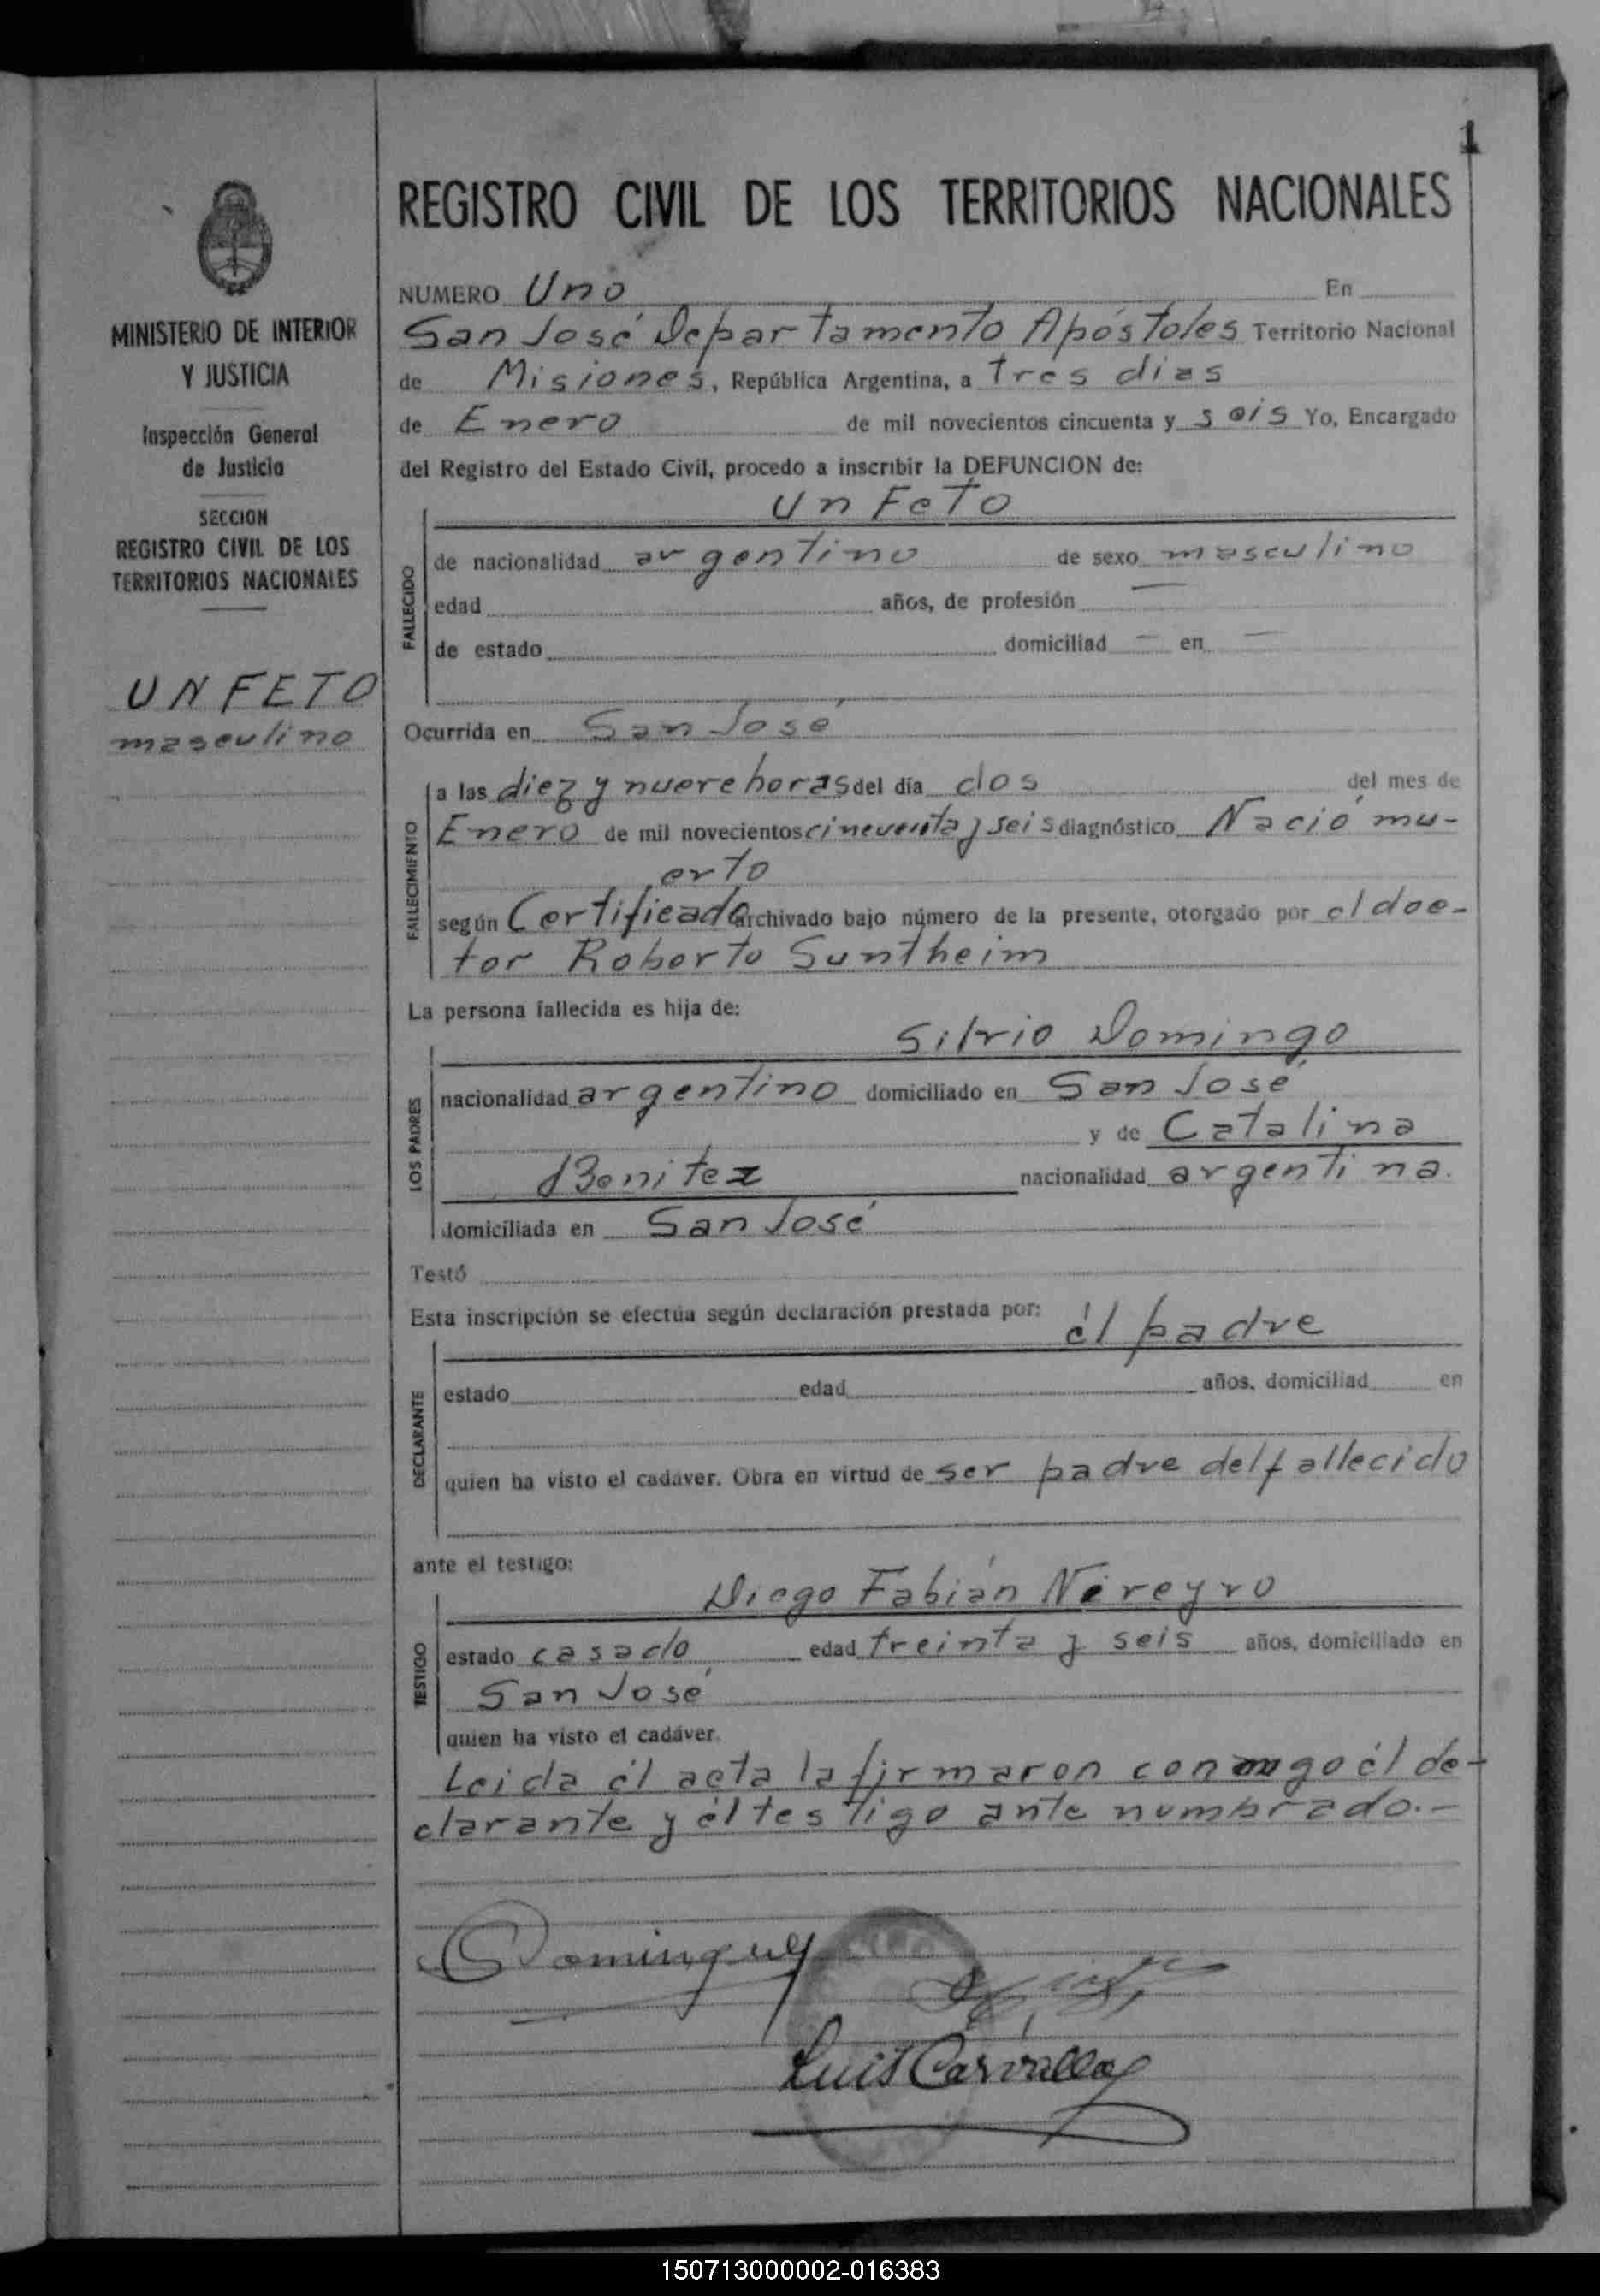 1
REGISTRO CIVIL DE LOS TERRITORIOS NACIONALES
MINISTERIO DE INTERIOR
Y JUSTICIA
Inspección General
de Justicia
SECCION
REGISTRO CIVIL DE LOS
TERRITORIOS NACIONALES
UN FETO
masculino
NUMERO Uno En
San José Departamento Apóstoles Territorio Nacional
de Misiones, República Argentina, a tres dias
de Enero de mil novecientos cincuenta y seis Yo, Encargado
del Registro del Estado Civil, procedo a inscribir la DEFUNCION de:
Un Feto
FALLECIDO
de nacionalidad argentino de sexo masculino
edad años, de profesión —
de estado domiciliad — en —
Ocurrida en San José
FALLECIMIENTO
a las diez y nueve horas del día dos del mes de
Enero de mil novecientos cincuenta y seis diagnóstico Nació mu-
erto
según Certificado archivado bajo número de la presente, otorgado por el doc-
tor Roberto Suntheim
La persona fallecida es hija de:
Silvio Domingo
LOS PADRES
nacionalidad argentino domiciliado en San José
y de Catalina
Benitez nacionalidad argentina.
domiciliada en San José
Testó
Esta inscripción se efectúa según declaración prestada por:
él padre
DECLARANTE
estado edad años, domiciliad en
quien ha visto el cadáver. Obra en virtud de ser padre del fallecido
ante el testigo:
Diego Fabián Nereyro
TESTIGO
estado casado edad treinta y seis años, domiciliado en
San José
quien ha visto el cadáver.
Leida él acta la firmaron conmigo él de-
clarante y él testigo ante nombrado.-
Luis Carvallo
150713000002-016383